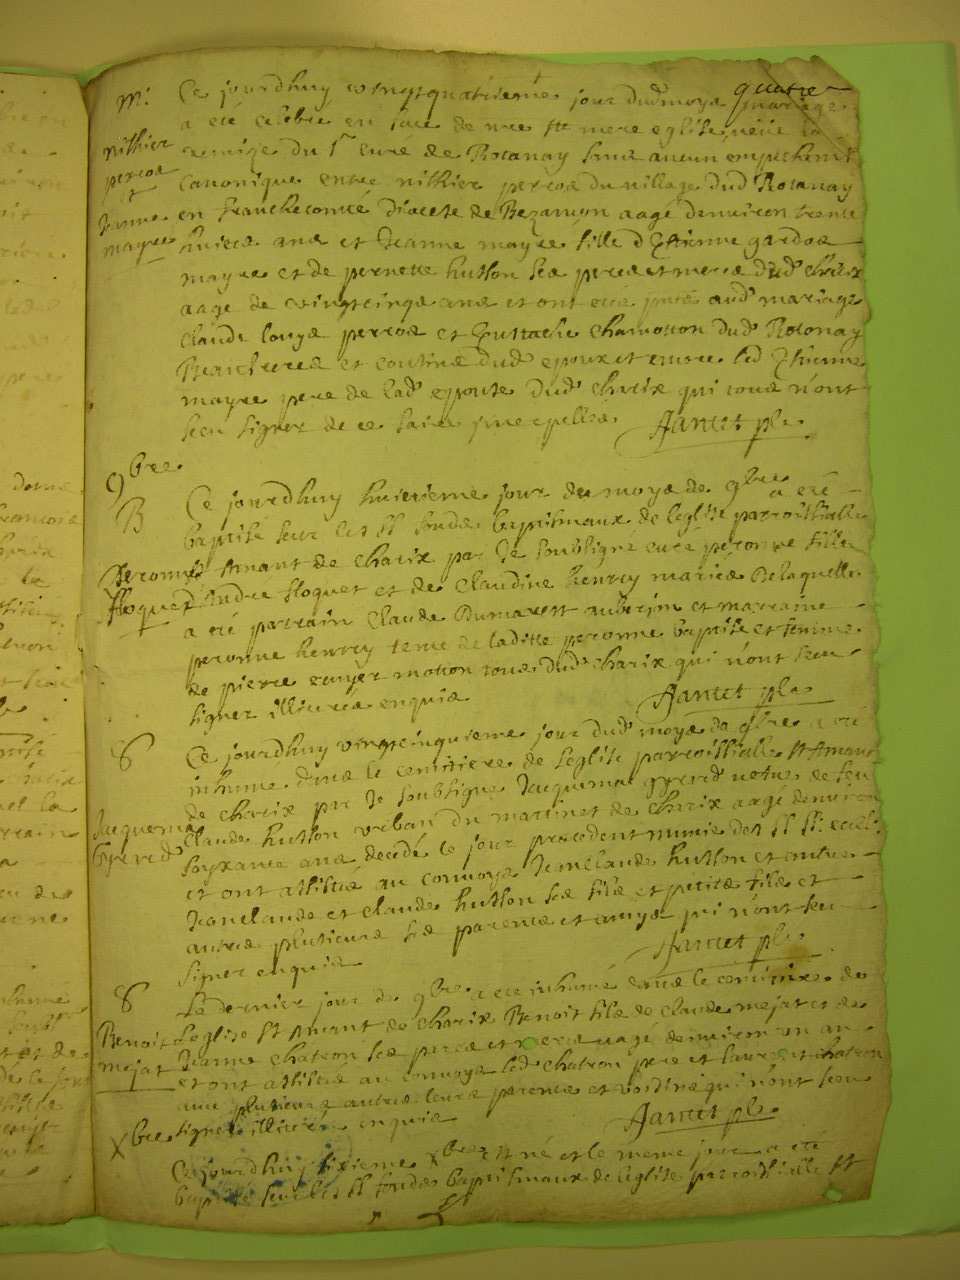 quatre
M.
nithier
perroe
et
Jeanne
mayre
Ce jourdhuy vingtquatrieme jour dud. moys mariage
a eté celebré en face de nre ste mere eglise veüe la
remise du Sr curé de Rotonay sans aucun empechemt
canonique entre nithier perroe du village dud. Rotonay
en franchecomté diocese de Bezançon aagé denviron trente
huict ans et Jeanne mayre fille d'Ethienne gardoe
mayre et de pernette hutlon ses pere et mere dud. Charix
aagé de vingtcinqs ans et ont eté pntz aud. mariage
Claude louys perroe et Eustache Chamotton dud. Rotonay
Beaufreres et cousins dud. epoux et encore led. Ethienne
mayre pere de lad. epouse dud. Charix qui tous n'ont
sceu signer de ce faire interpellés Jantet pbr.
9bre
B
peronne
floquet
Ce jourdhuy huictieme jour du moys de 9bre a eté
baptisé sur les SS fonds baptismaux de leglise parroissialle
St Amant de Charix par Je soubsigné curé peronne fille
d'Andre floquet et de Claudine henrey mariés De laquelle
a eté parrain Claude Dumarest et marraine
peronne henrey tente de laditte peronne baptisée et femme
de pierre motton tous dud. Charix qui n'ont sceu
signer illiterés enquis Jantet pbr
S
Jacquema
gyrerd
Ce jourdhuy vingtcinquieme jour dud. moys de 9bre a eté
inhumé dans le cemitiere de leglise parroissialle St Amant
de Charix par Je soubsigné Jacquema gyrerd vefve de feu
Claude hutlon vivant du martinet de Charix aagé denviron
soyxante ans decedé le jour precedent munie des SS Sts
et ont assisté au convoye Jeanclaude hutlon et
Jeanclaude et Claude hutlon ses fils et petits fils et
autres plusieurs ses parents et amys qui n'ont sceu
signer enquis Jantet pbr
S
Benoit
mejat
Le dernier jour de 9bre a eté inhumé dans le cemitiere de
leglise St Amant de Charix Benoit fils de Claude mejat et de
Jeanne Chatron ses pere et mere aagé denviron un an
et ont assisté au convoye led. Chatron pere et laurent Chatron
avec plusieurs autres leurs parents et voisins qui n'ont sceu
signer illiterés enquis Jantet pbr
Xbre
Ce jourdhuy sixieme Xbre est né et le meme jour a eté
baptisé sur les SS fonds baptismaux de leglise parroissialle St